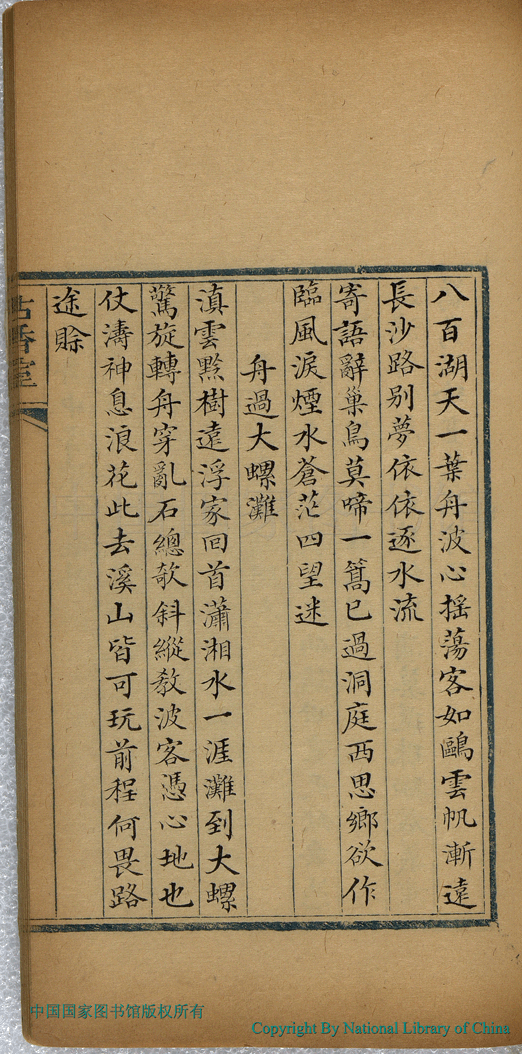 八百湖天一葉舟波心揺蕩客如鷗雲帆漸遠
長沙路別夢依依逐水流
寄語辭巢鳥莫啼一篙已過洞庭西思鄉欲作
臨風淚煙水蒼茫四望迷
舟過大螺灘
滇雲黔樹遠浮家回首瀟湘水一涯灘到大螺
驚旋轉舟穿亂石總欹斜縱教波客憑心地也
仗濤神息浪花此去溪山皆可玩前程何畏路
途賒
中国国家图书馆版权所有
Copyright By National Library of China